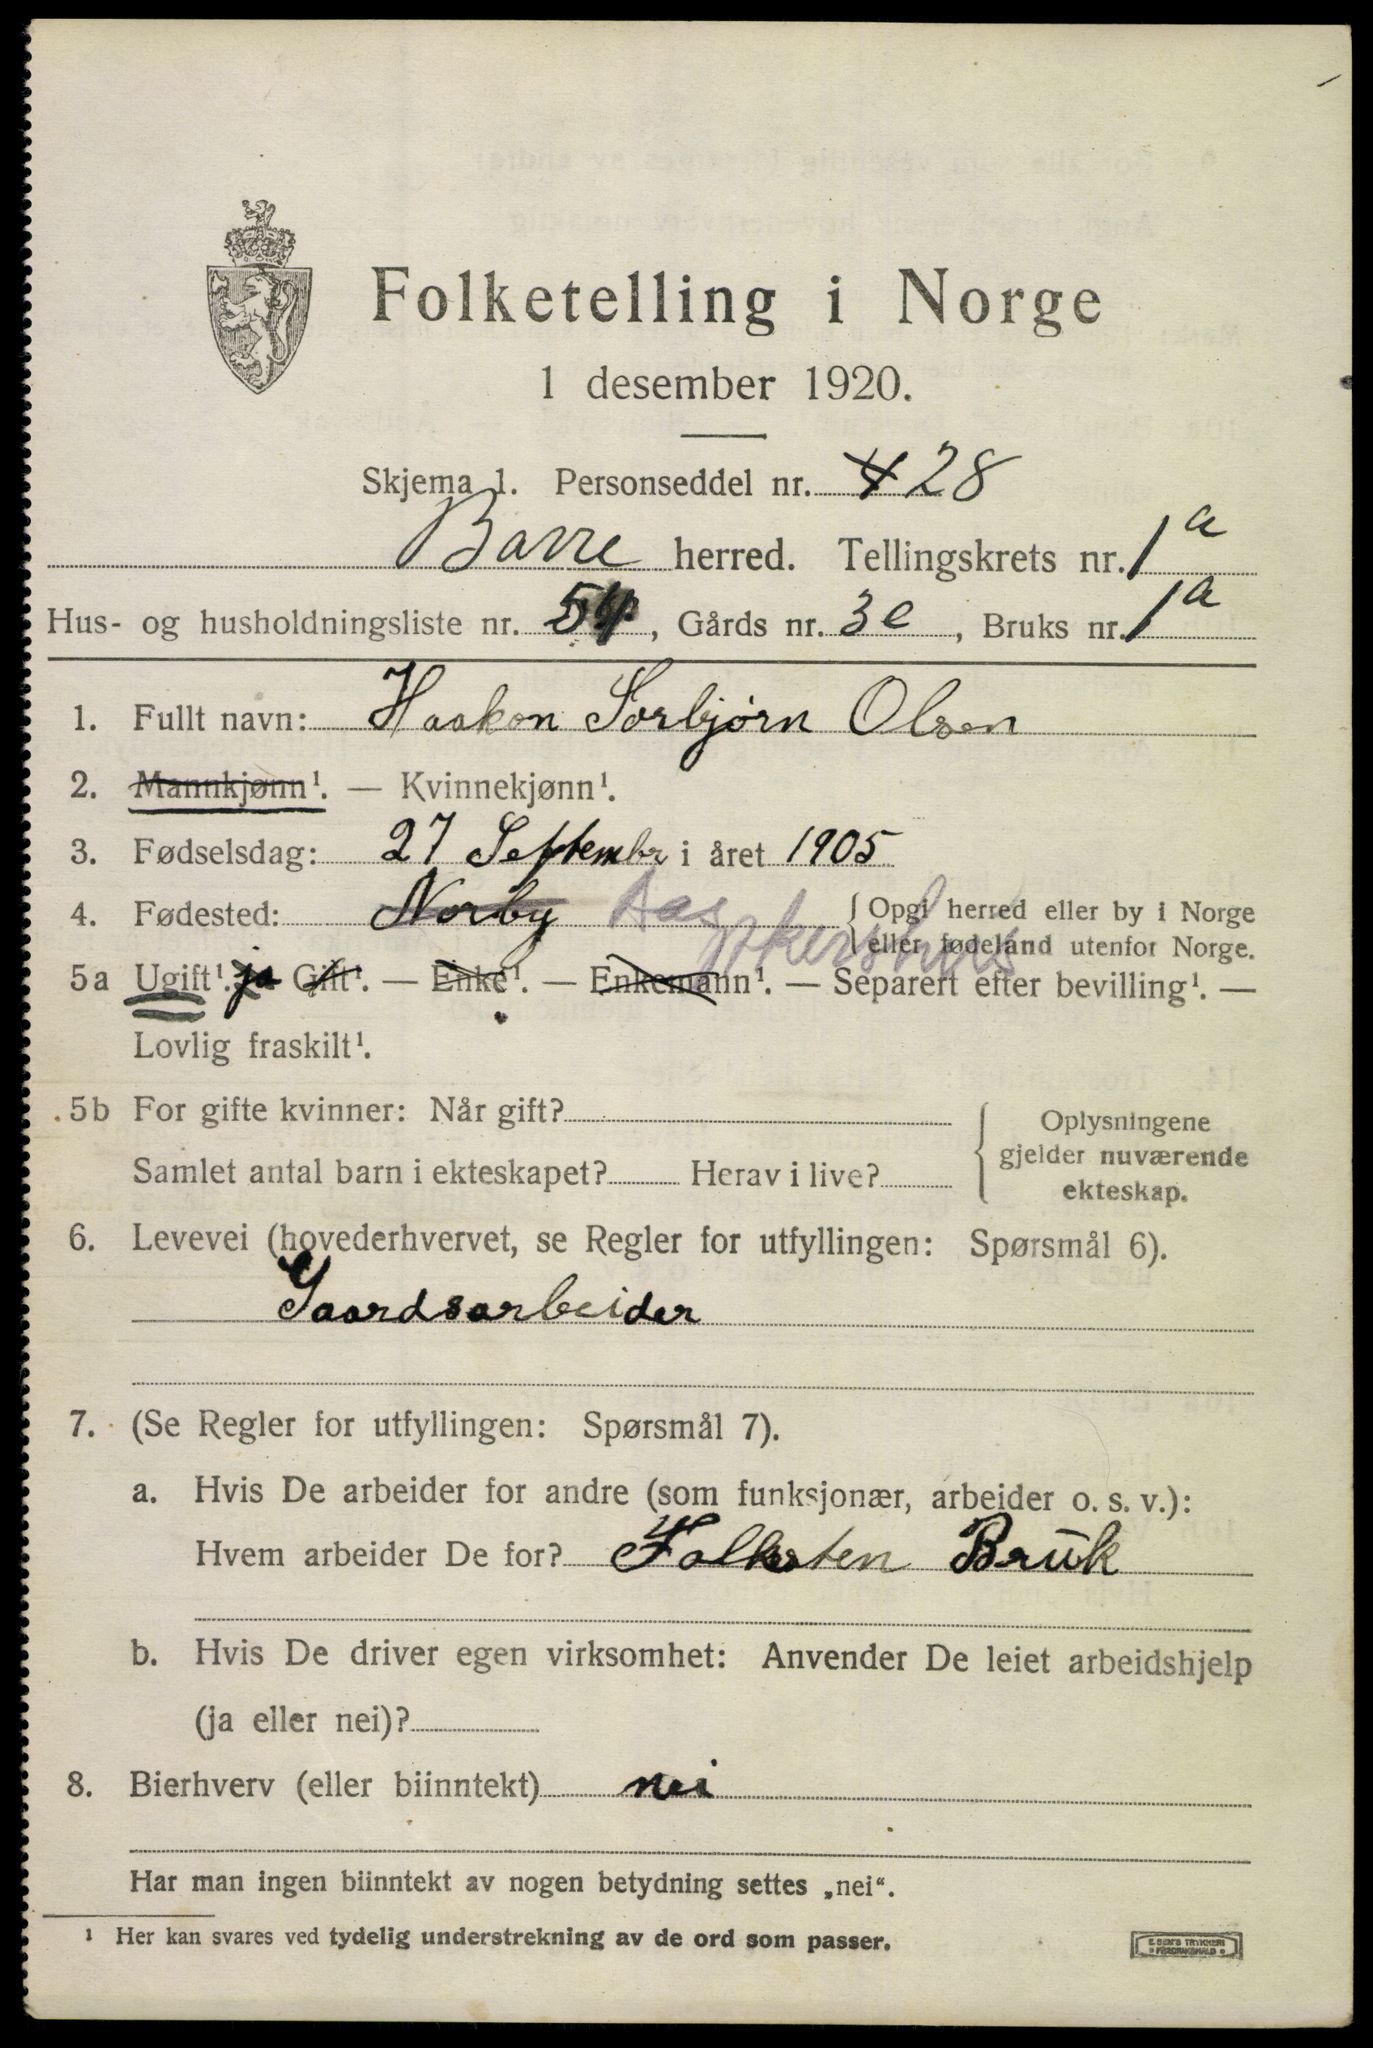 Folketelling i Norge
1 desember 1920.
Skjema 1. Personseddel nr. 4 28
Borre herred. Tellingskrets nr. 1a
Hus- og husholdningsliste nr. 54, Gårds nr. 3e, Bruks nr. 1a
1. Fullt navn: Haakon Torbjørn Olsen
2. Mannkjønn¹. — Kvinnekjønn¹.
3. Fødselsdag: 27 Septembr i året 1905
4. Fødested: Norby { Opgi herred eller by i Norge
eller fødeland utenfor Norge.
5a Ugift¹. ja Gift¹. — Enke¹. — Enkemann¹. — Separert efter bevilling¹. —
Lovlig fraskilt¹.
5b For gifte kvinner: Når gift?
Samlet antal barn i ekteskapet? Herav i live?
Oplysningene
gjelder nuværende
ekteskap.
6. Levevei (hovederhvervet, se Regler for utfyllingen: Spørsmål 6).
Gaardsarbeider
7. (Se Regler for utfyllingen: Spørsmål 7).
a. Hvis De arbeider for andre (som funksjonær, arbeider o. s. v.):
Hvem arbeider De for? Falksten Bruk
b. Hvis De driver egen virksomhet: Anvender De leiet arbeidshjelp
(ja eller nei)?
8. Bierhverv (eller biinntekt) nei
Har man ingen biinntekt av nogen betydning settes „nei“.
¹ Her kan svares ved tydelig understrekning av de ord som passer.
E. SEM'S TRYKKERI
FREDRIKSHALD